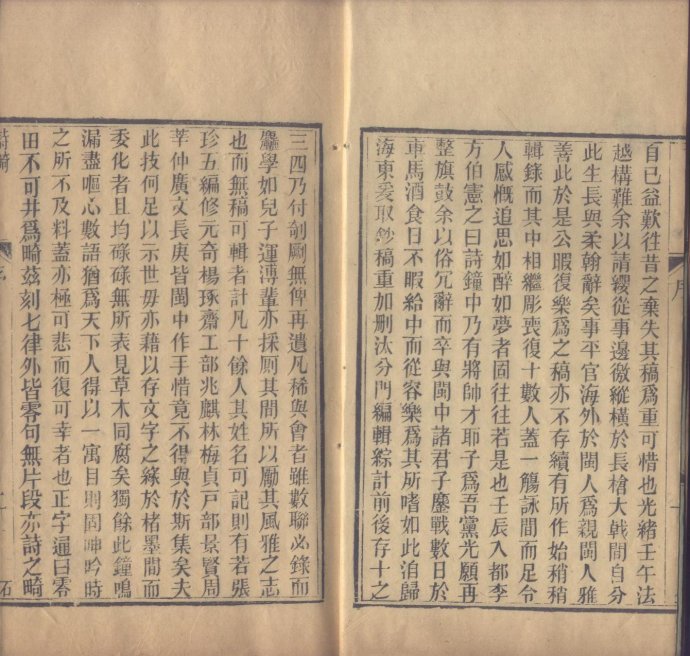 自已益歎往昔之棄失其稿爲重可惜也光緒壬午法
越構難余以請纓從事邊徼縱橫於長槍大戟間自分
此生長與柔翰辭矣事平官海外於閩人爲親閩人雅
善此於是公暇復樂爲之稿亦不存續有所作始稍稍
輯錄而其中相繼彫喪復十數人蓋一觴詠間而足令
人感慨追思如醉如夢者固往往若是也壬辰入都李
方伯憲之曰詩鐘中乃有將帥才耶子爲吾黨光願再
整旗鼓余以俗冗辭而卒與閩中諸君子鏖戰數日於
車馬酒食日不暇給中而從容樂爲其所嗜如此洎歸
海東爰取鈔稿重加刪汰分門編輯綜計前後存十之
三四乃付剞劂無俾再遺凡稀與會者雖數聯必錄而
麤學如兒子運溥輩亦採厠其間所以勵其風雅之志
也而無稿可輯者計凡十餘人其姓名可記則有若張
珍五編修元奇楊琢齋工部兆麒林梅貞戸部景賢周
莘仲廣文長庚皆閩中作手惜竟不得與於斯集矣夫
此技何足以示世毋亦藉以存文字之緣於楮墨間而
委化者且均碌碌無所表見草木同腐矣獨餘此鐘鳴
漏盡嘔心數語猶爲天下人得以一寓目則固呻吟時
之所不及料蓋亦極可悲而復可幸者也正字通曰零
田不可井爲畸茲刻七律外皆零句無片段亦詩之畸
詩畸
序
二
石